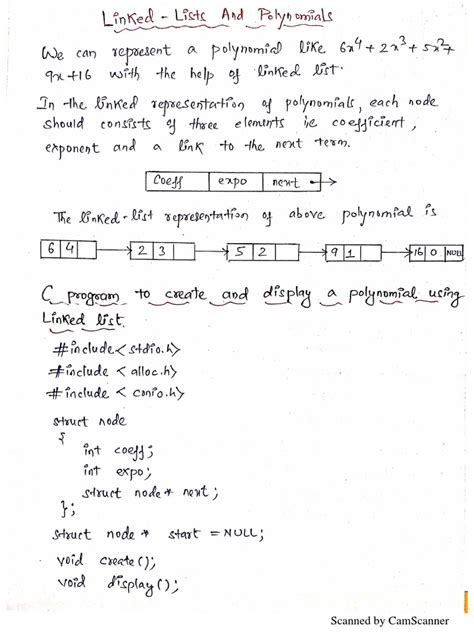 Linked - Lists And Polynomials
We can represent a polynomial like 6x⁴ + 2x³ + 5x² +
9x + 16 with the help of linked list.
In the linked representation of polynomials, each node
should consists of three elements ie coefficient,
exponent and a link to the next term.
Coeff expo next
The linked-list representation of above polynomial is
6 4 2 3 5 2 9 1 16 0 NULL
C program to create and display a polynomial using
Linked list.
#include< stdio.h>
#include < alloc.h>
#include < conio.h>
struct node
{
int coeff;
int expo;
struct node* next;
};
struct node * start = NULL;
void create();
void display();
Scanned by CamScanner